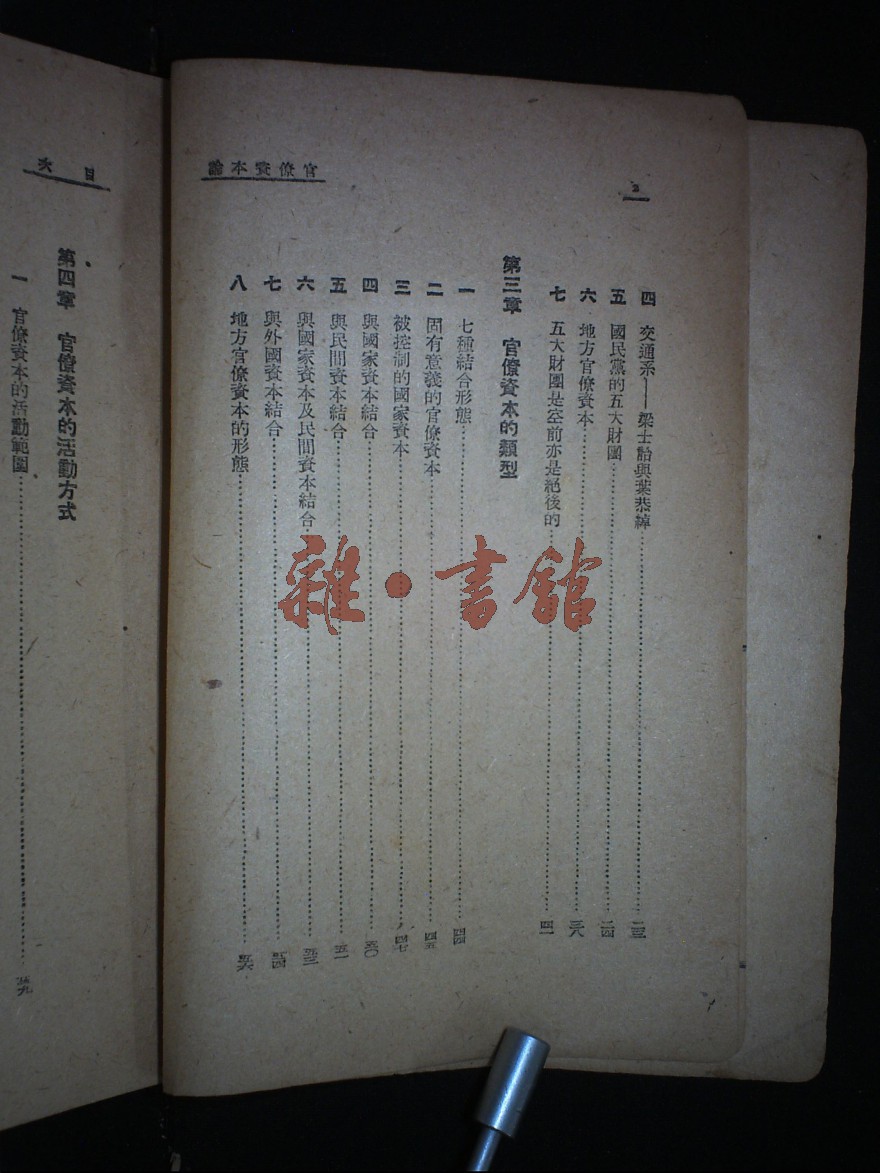 官僚資本論
2
四 交通系——梁士詒與葉恭綽……二三
五 國民黨的五大財團……二四
六 地方官僚資本……三八
七 五大財團是空前亦是絕後的……四一
第三章 官僚資本的類型
一 七種結合形態……四四
二 固有意義的官僚資本……四五
三 被控制的國家資本……四七
四 與國家資本結合……五〇
五 與民間資本結合……五一
六 與國家資本及民間資本結合……五三
七 與外國資本結合……五四
八 地方官僚資本的形態……五六
目次
第四章 官僚資本的活動方式
一 官僚資本的活動範圍……五九
雜·書館